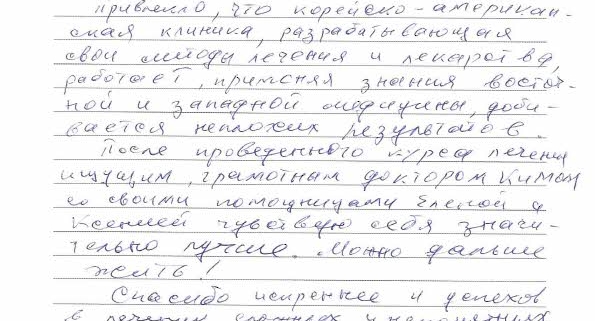 привлекло, что корейско-американ-
ская клиника, разрабатывающая
свои методы лечения и лекарства,
работает, применяя знания восточ-
ной и западной медицины, доби-
вается неплохих результатов.
После проведенного курса лечения
ищущим, грамотным доктором Кимом
со своими помощницами Еленой и
Ксенией чувствую себя значи-
тельно лучше. Можно дальше
жить!
Спасибо искреннее и успехов
в лечении сложных и непонятных